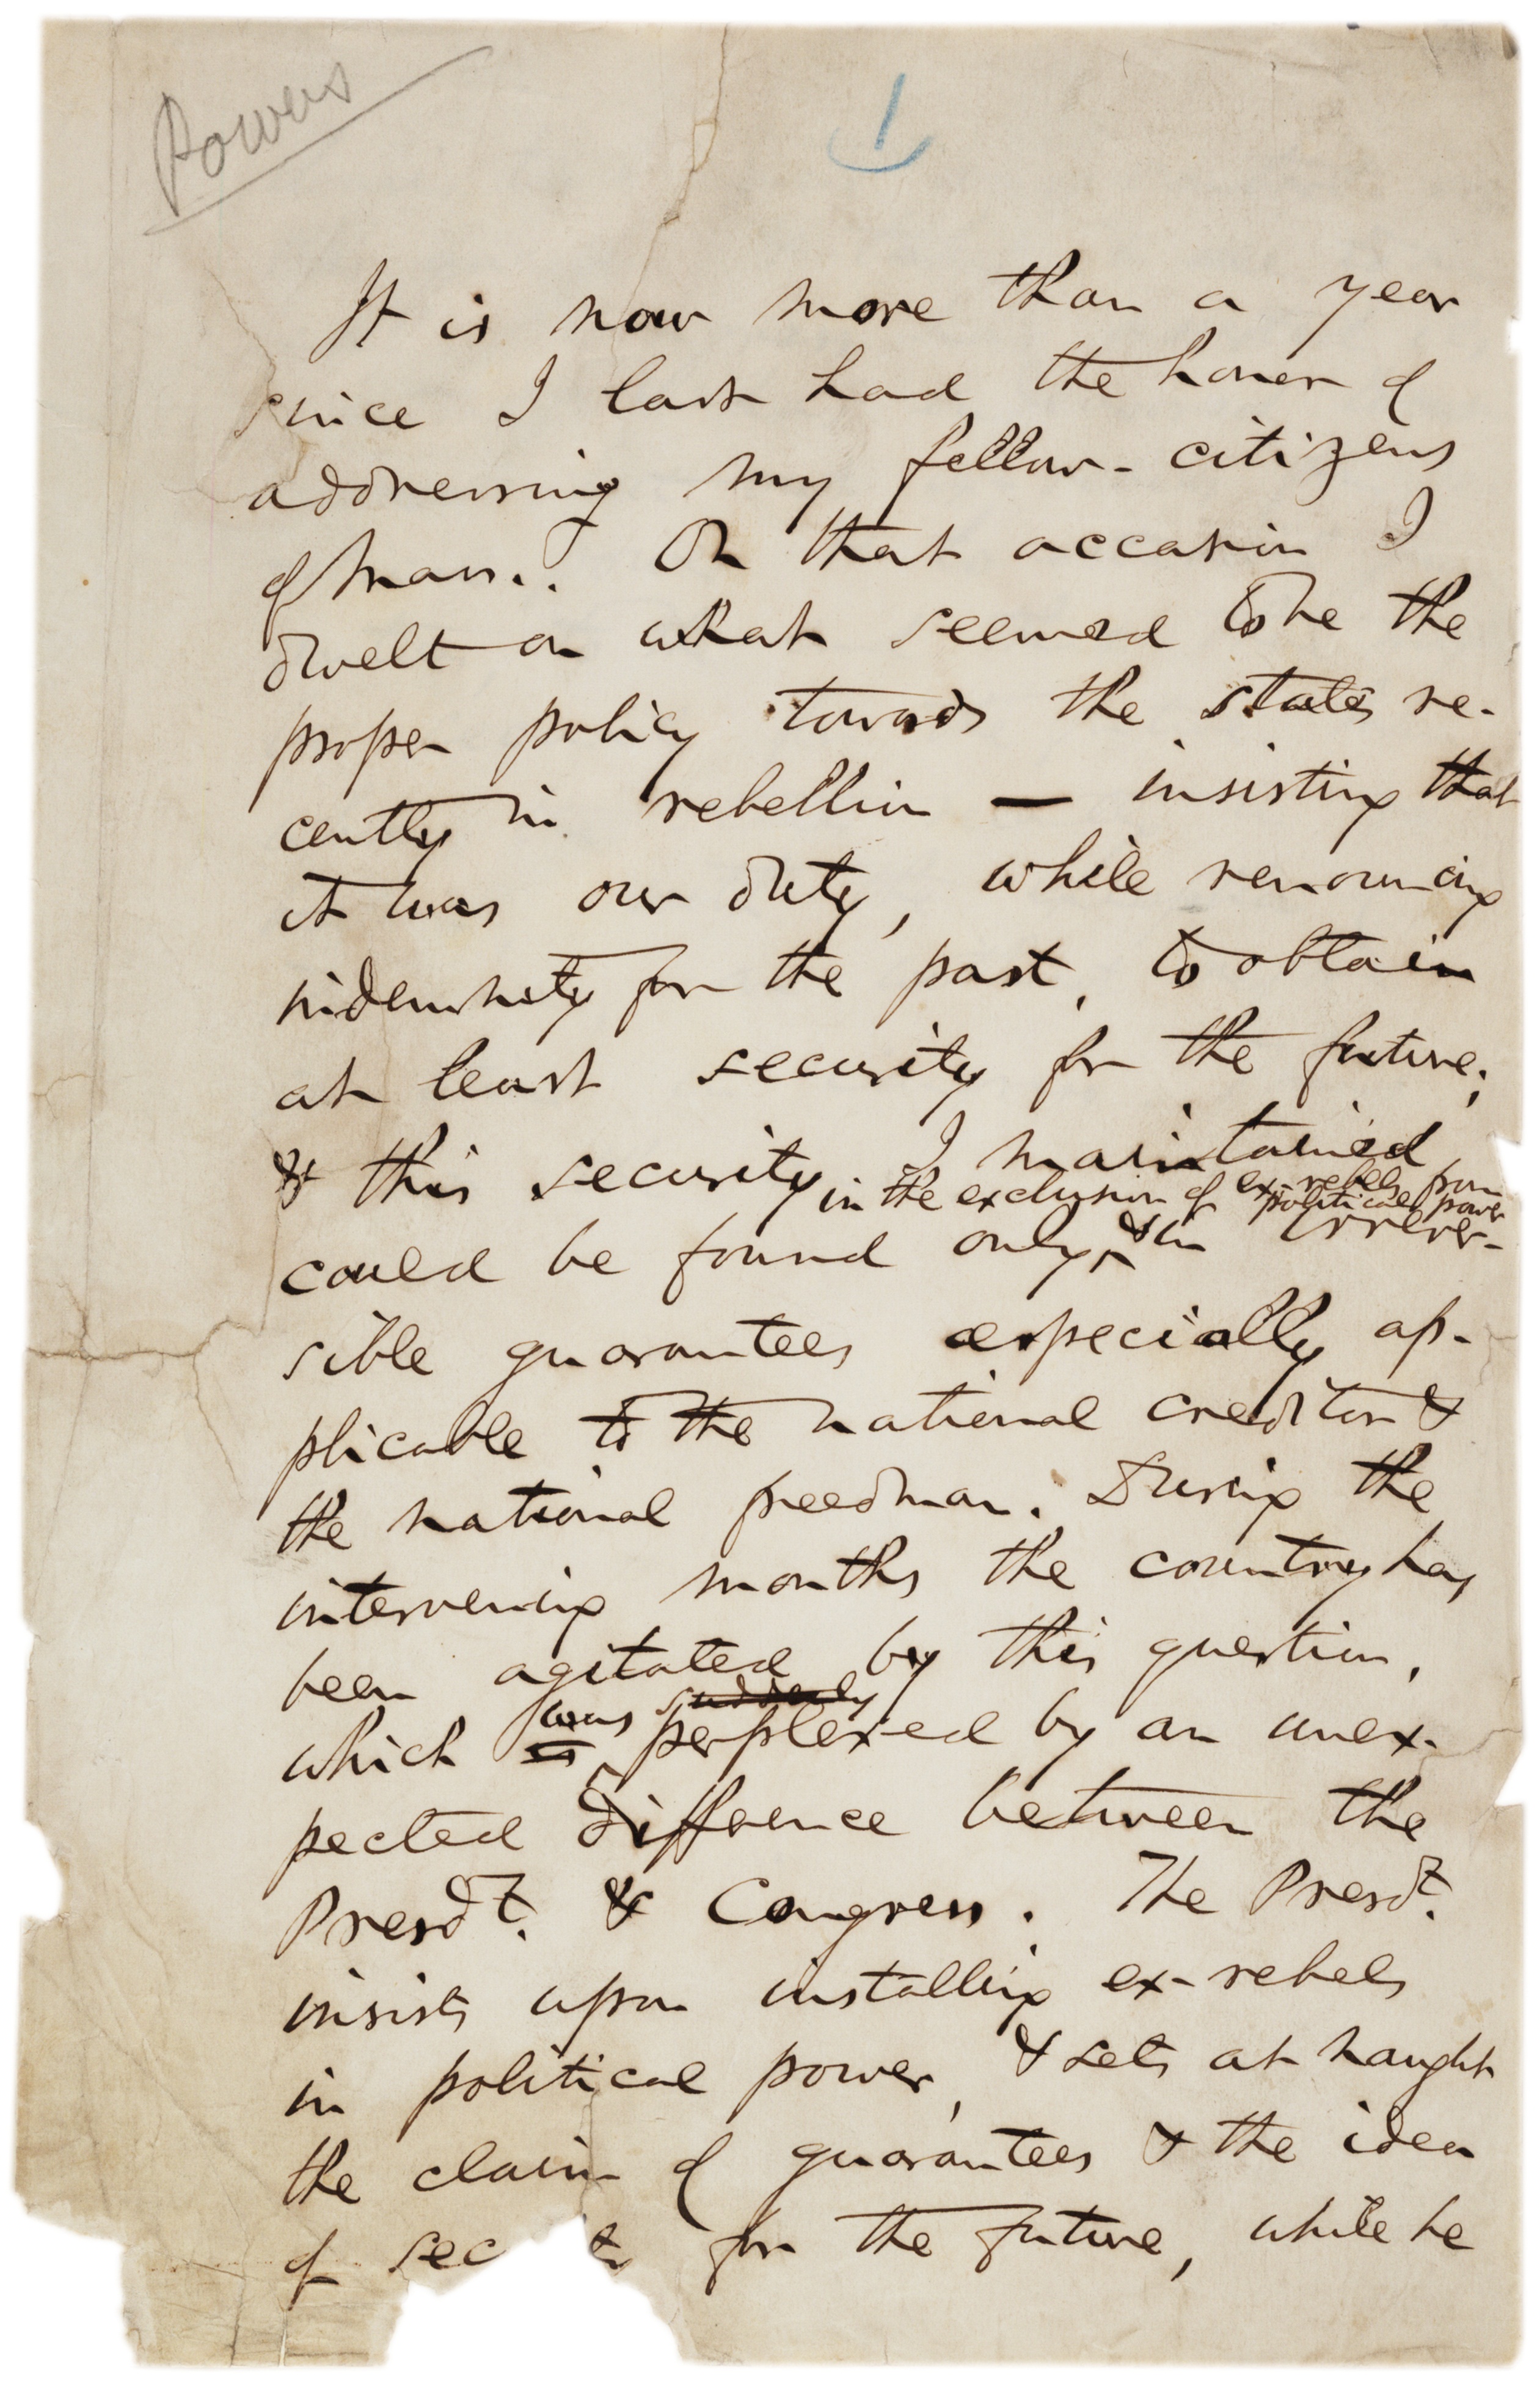 Powers
1
It is now more than a year
since I last had the honor of
addressing my fellow-citizens
of Mass.. On that occasion I
dwelt on what seemed to be the
proper policy towards the states re-
cently in rebellion — insisting that
it was our duty, while renouncing
indemnity for the past, to obtain
at least security for the future;
& this security I maintained
in the exclusion of ex-rebels from
political power
could be found only ^ & in irrever-
sible guarantees especially ap-
plicable to the national creditor &
the national freedman. During the
intervening months the country has
been agitated by this question,
was suddenly
which is perplexed by an unex-
pected difference between the
Presdt. & Congress. The Presdt.
insists upon installing ex-rebels
in political power, & sets at naught
the claim of guarantees & the idea
of sec ty for the future, while he